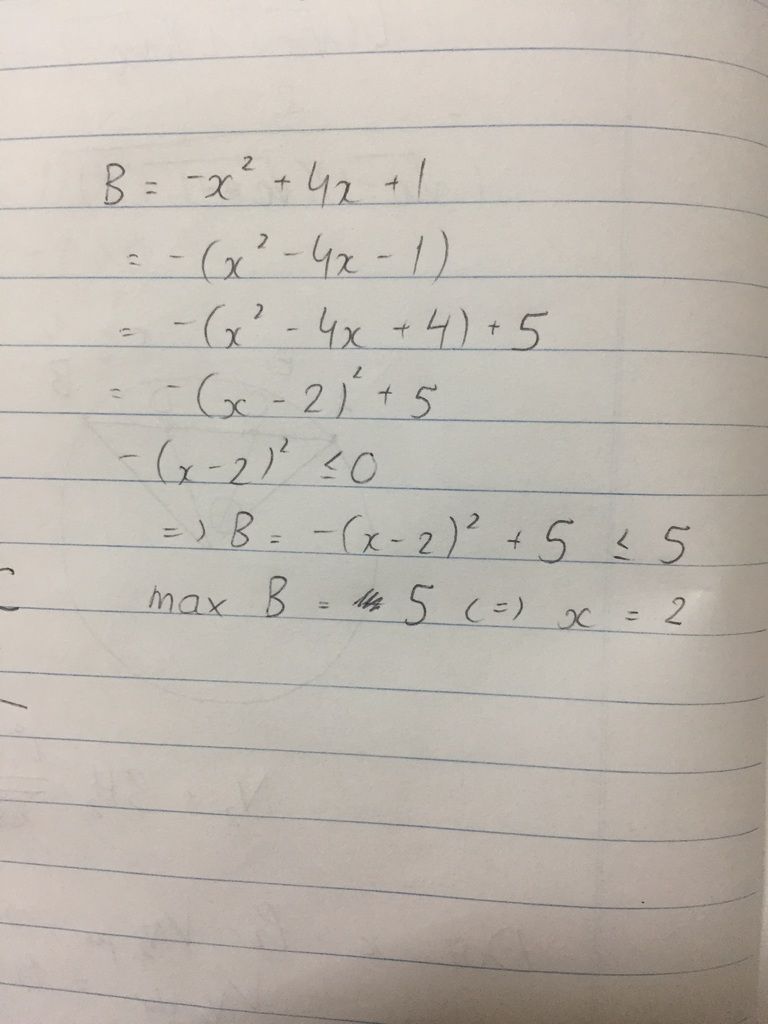 B = -x² + 4x + 1
= -(x² - 4x - 1)
= -(x² - 4x + 4) + 5
= -(x - 2)² + 5
-(x-2)² ≤ 0
=> B = -(x-2)² + 5 ≤ 5
max B = 5 (=) x = 2